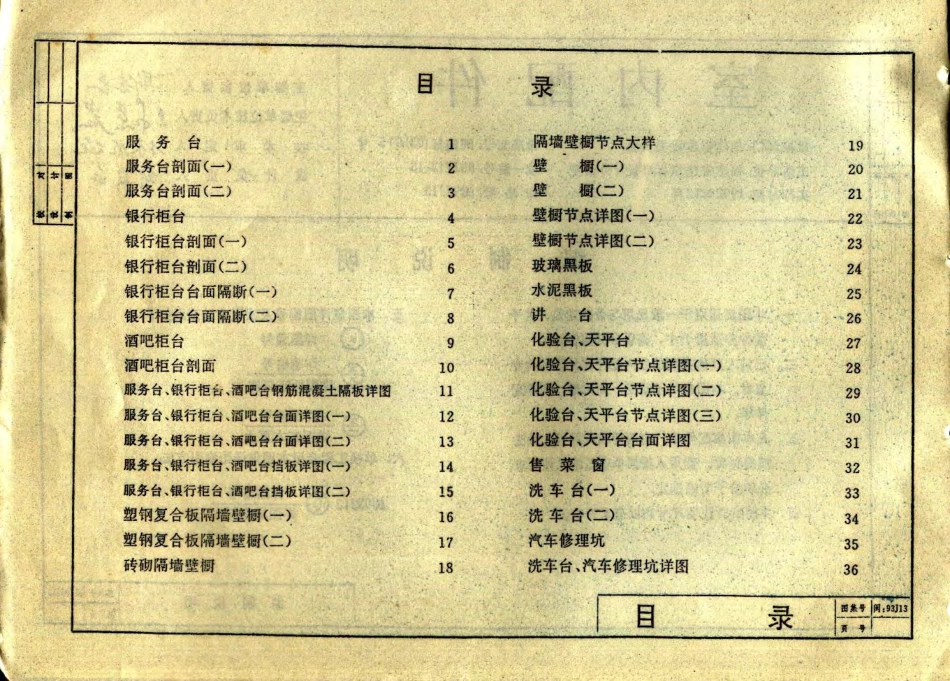 目 录
服 务 台 1
服务台剖面(一) 2
服务台剖面(二) 3
银行柜台 4
银行柜台剖面(一) 5
银行柜台剖面(二) 6
银行柜台台面隔断(一) 7
银行柜台台面隔断(二) 8
酒吧柜台 9
酒吧柜台剖面 10
服务台、银行柜台、酒吧台钢筋混凝土隔板详图 11
服务台、银行柜台、酒吧台台面详图(一) 12
服务台、银行柜台、酒吧台台面详图(二) 13
服务台、银行柜台、酒吧台挡板详图(一) 14
服务台、银行柜台、酒吧台挡板详图(二) 15
塑钢复合板隔墙壁橱(一) 16
塑钢复合板隔墙壁橱(二) 17
砖砌隔墙壁橱 18
隔墙壁橱节点大样 19
壁 橱(一) 20
壁 橱(二) 21
壁橱节点详图(一) 22
壁橱节点详图(二) 23
玻璃黑板 24
水泥黑板 25
讲 台 26
化验台、天平台 27
化验台、天平台节点详图(一) 28
化验台、天平台节点详图(二) 29
化验台、天平台节点详图(三) 30
化验台、天平台台面详图 31
售 菜 窗 32
洗 车 台(一) 33
洗 车 台(二) 34
汽车修理坑 35
洗车台、汽车修理坑详图 36
目 录
图集号 闽:93J13
页 号
校 对
设 计
制 图